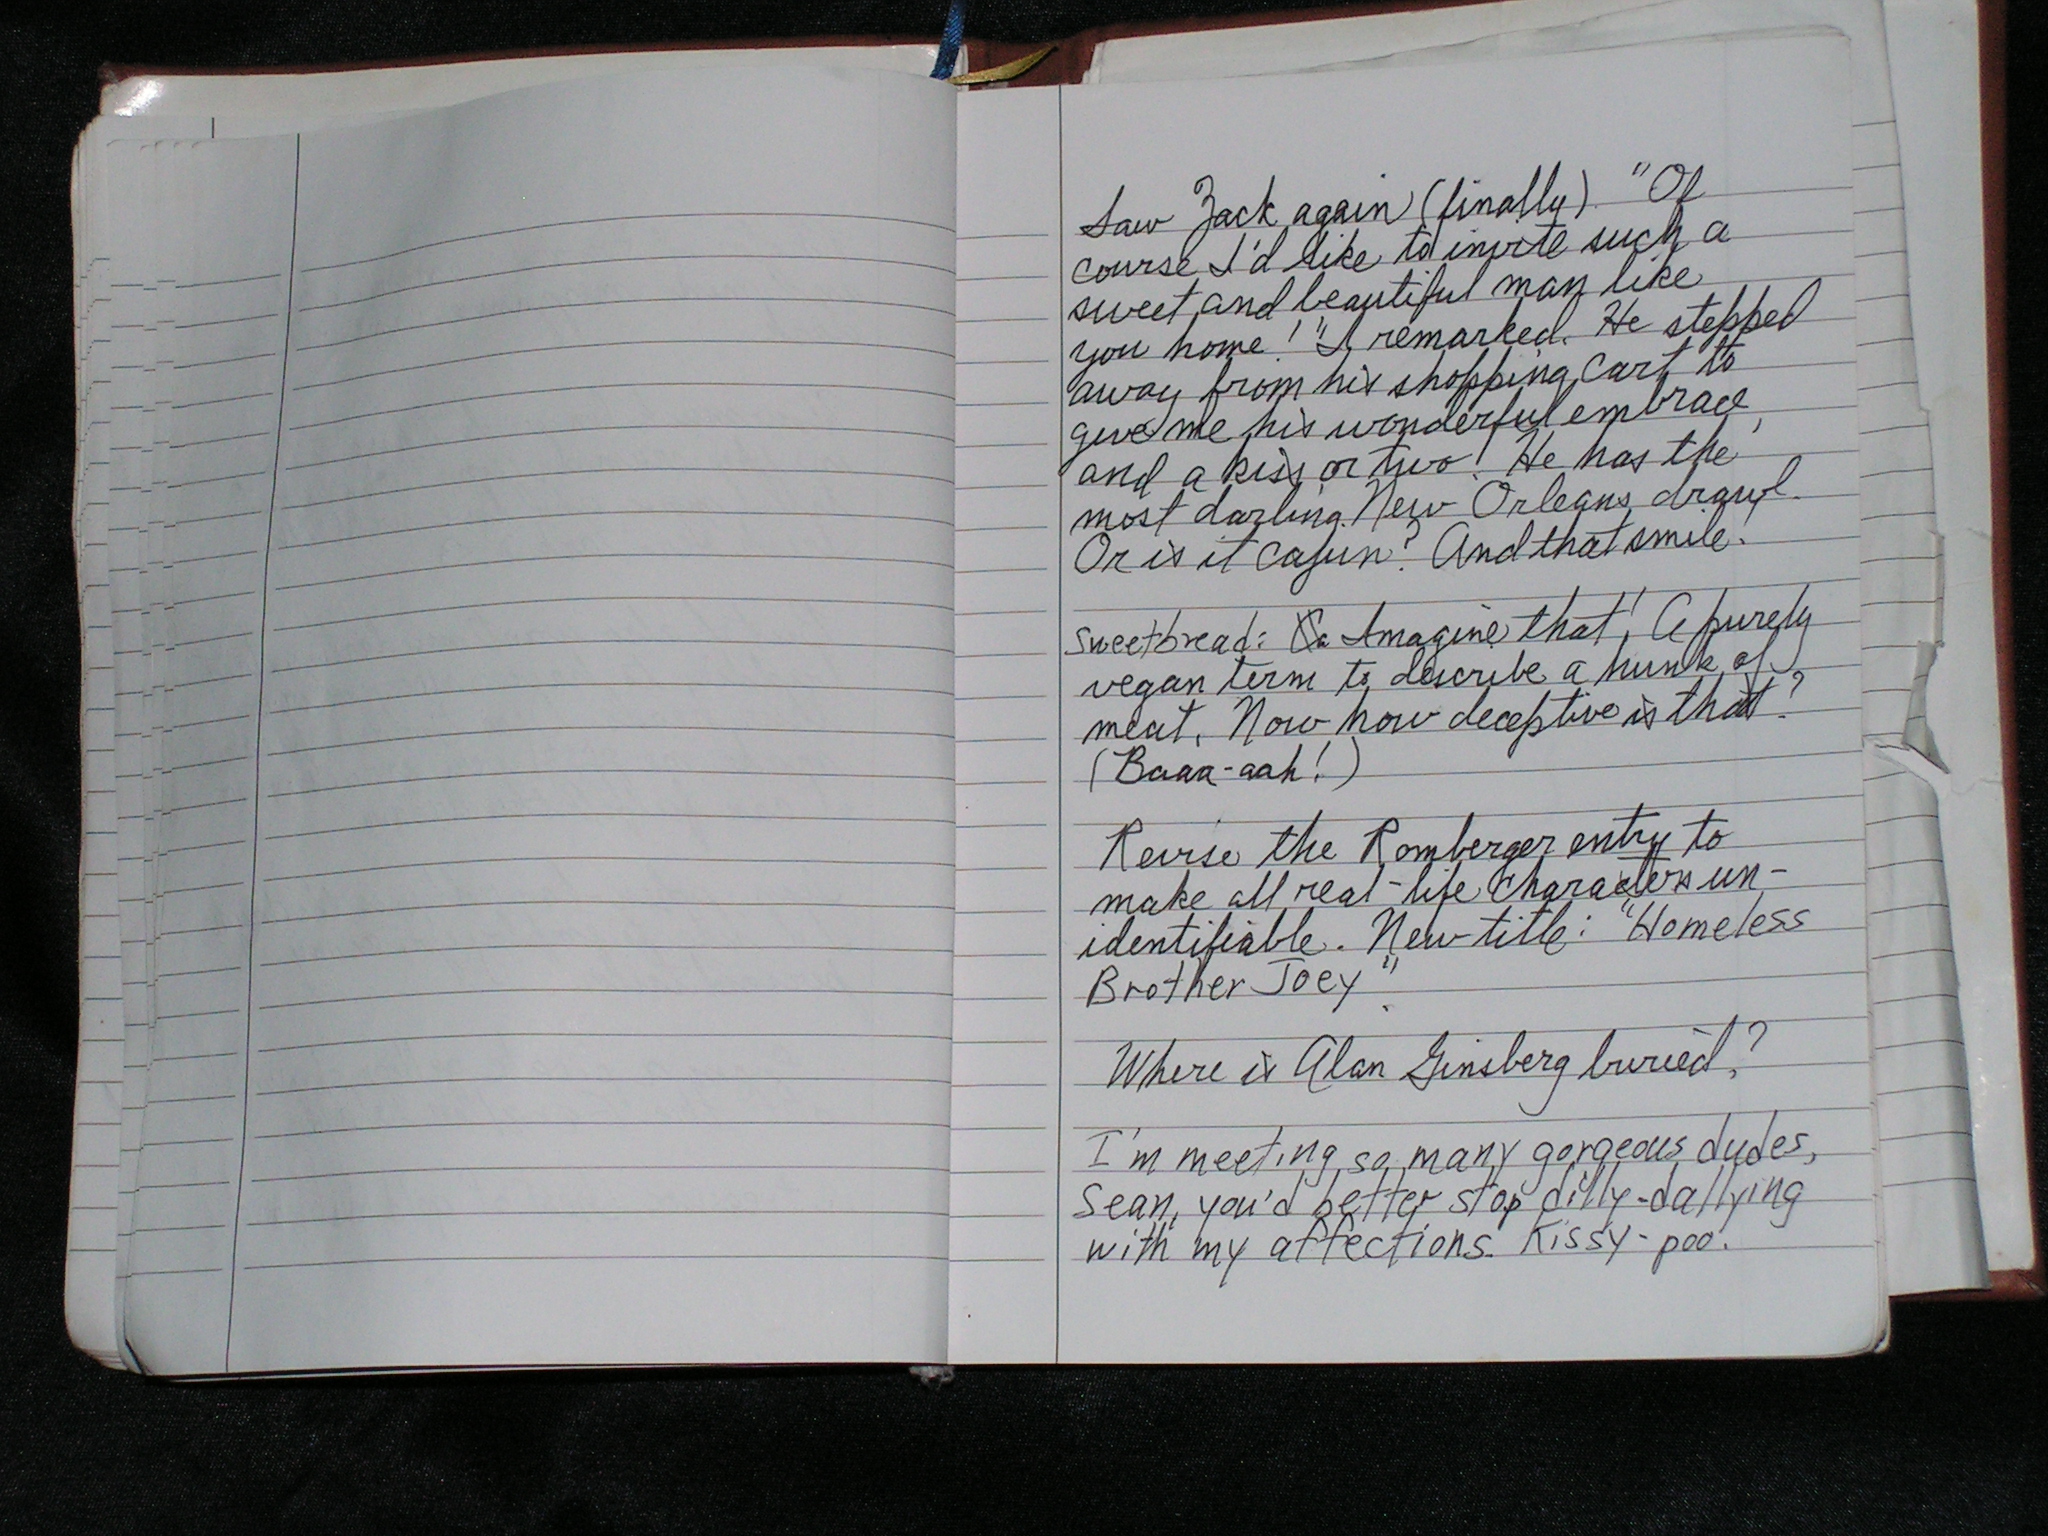 Saw Zack again (finally). "Of
course I'd like to invite such a
sweet and beautiful man like
you home!" I remarked. He stepped
away from his shopping cart to
give me his wonderful embrace,
and a kiss or two! He has the
most darling New Orleans drawl.
Or is it Cajun? And that smile!
Sweetbread: Imagine that! A purely
vegan term to describe a hunk of
meat. Now how deceptive is that?
(Baaa-aah!)
Revise the Romberger entry to
make all real-life characters un-
identifiable. New title: "Homeless
Brother Joey".
Where is Alan Ginsberg buried?
I'm meeting so many gorgeous dudes,
Sean, you'd better stop dilly-dallying
with my affections. Kissy-poo.